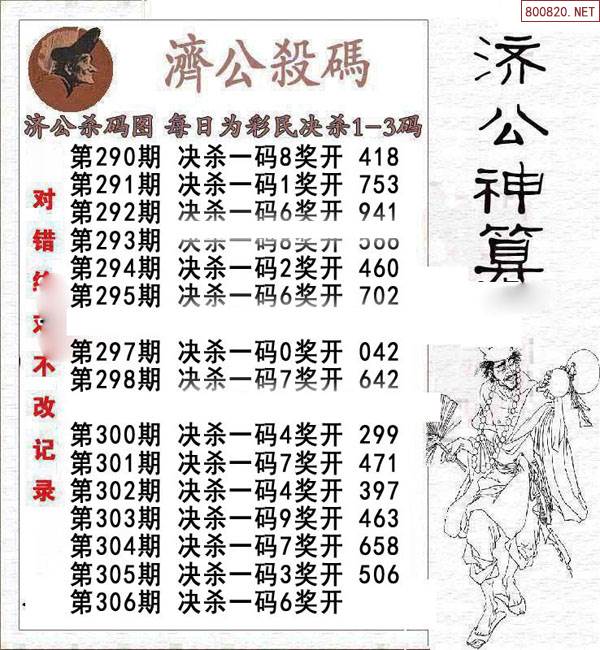 800820.NET
濟公殺碼
济公杀码图 每日为彩民决杀1-3码
第290期 决杀一码8奖开 418
第291期 决杀一码1奖开 753
第292期 决杀一码6奖开 941
第293期 决杀一码8奖开
第294期 决杀一码2奖开 460
第295期 决杀一码6奖开 702
第297期 决杀一码0奖开 042
第298期 决杀一码7奖开 642
第300期 决杀一码4奖开 299
第301期 决杀一码7奖开 471
第302期 决杀一码4奖开 397
第303期 决杀一码9奖开 463
第304期 决杀一码7奖开 658
第305期 决杀一码3奖开 506
第306期 决杀一码6奖开
对错不改记录
济公神算